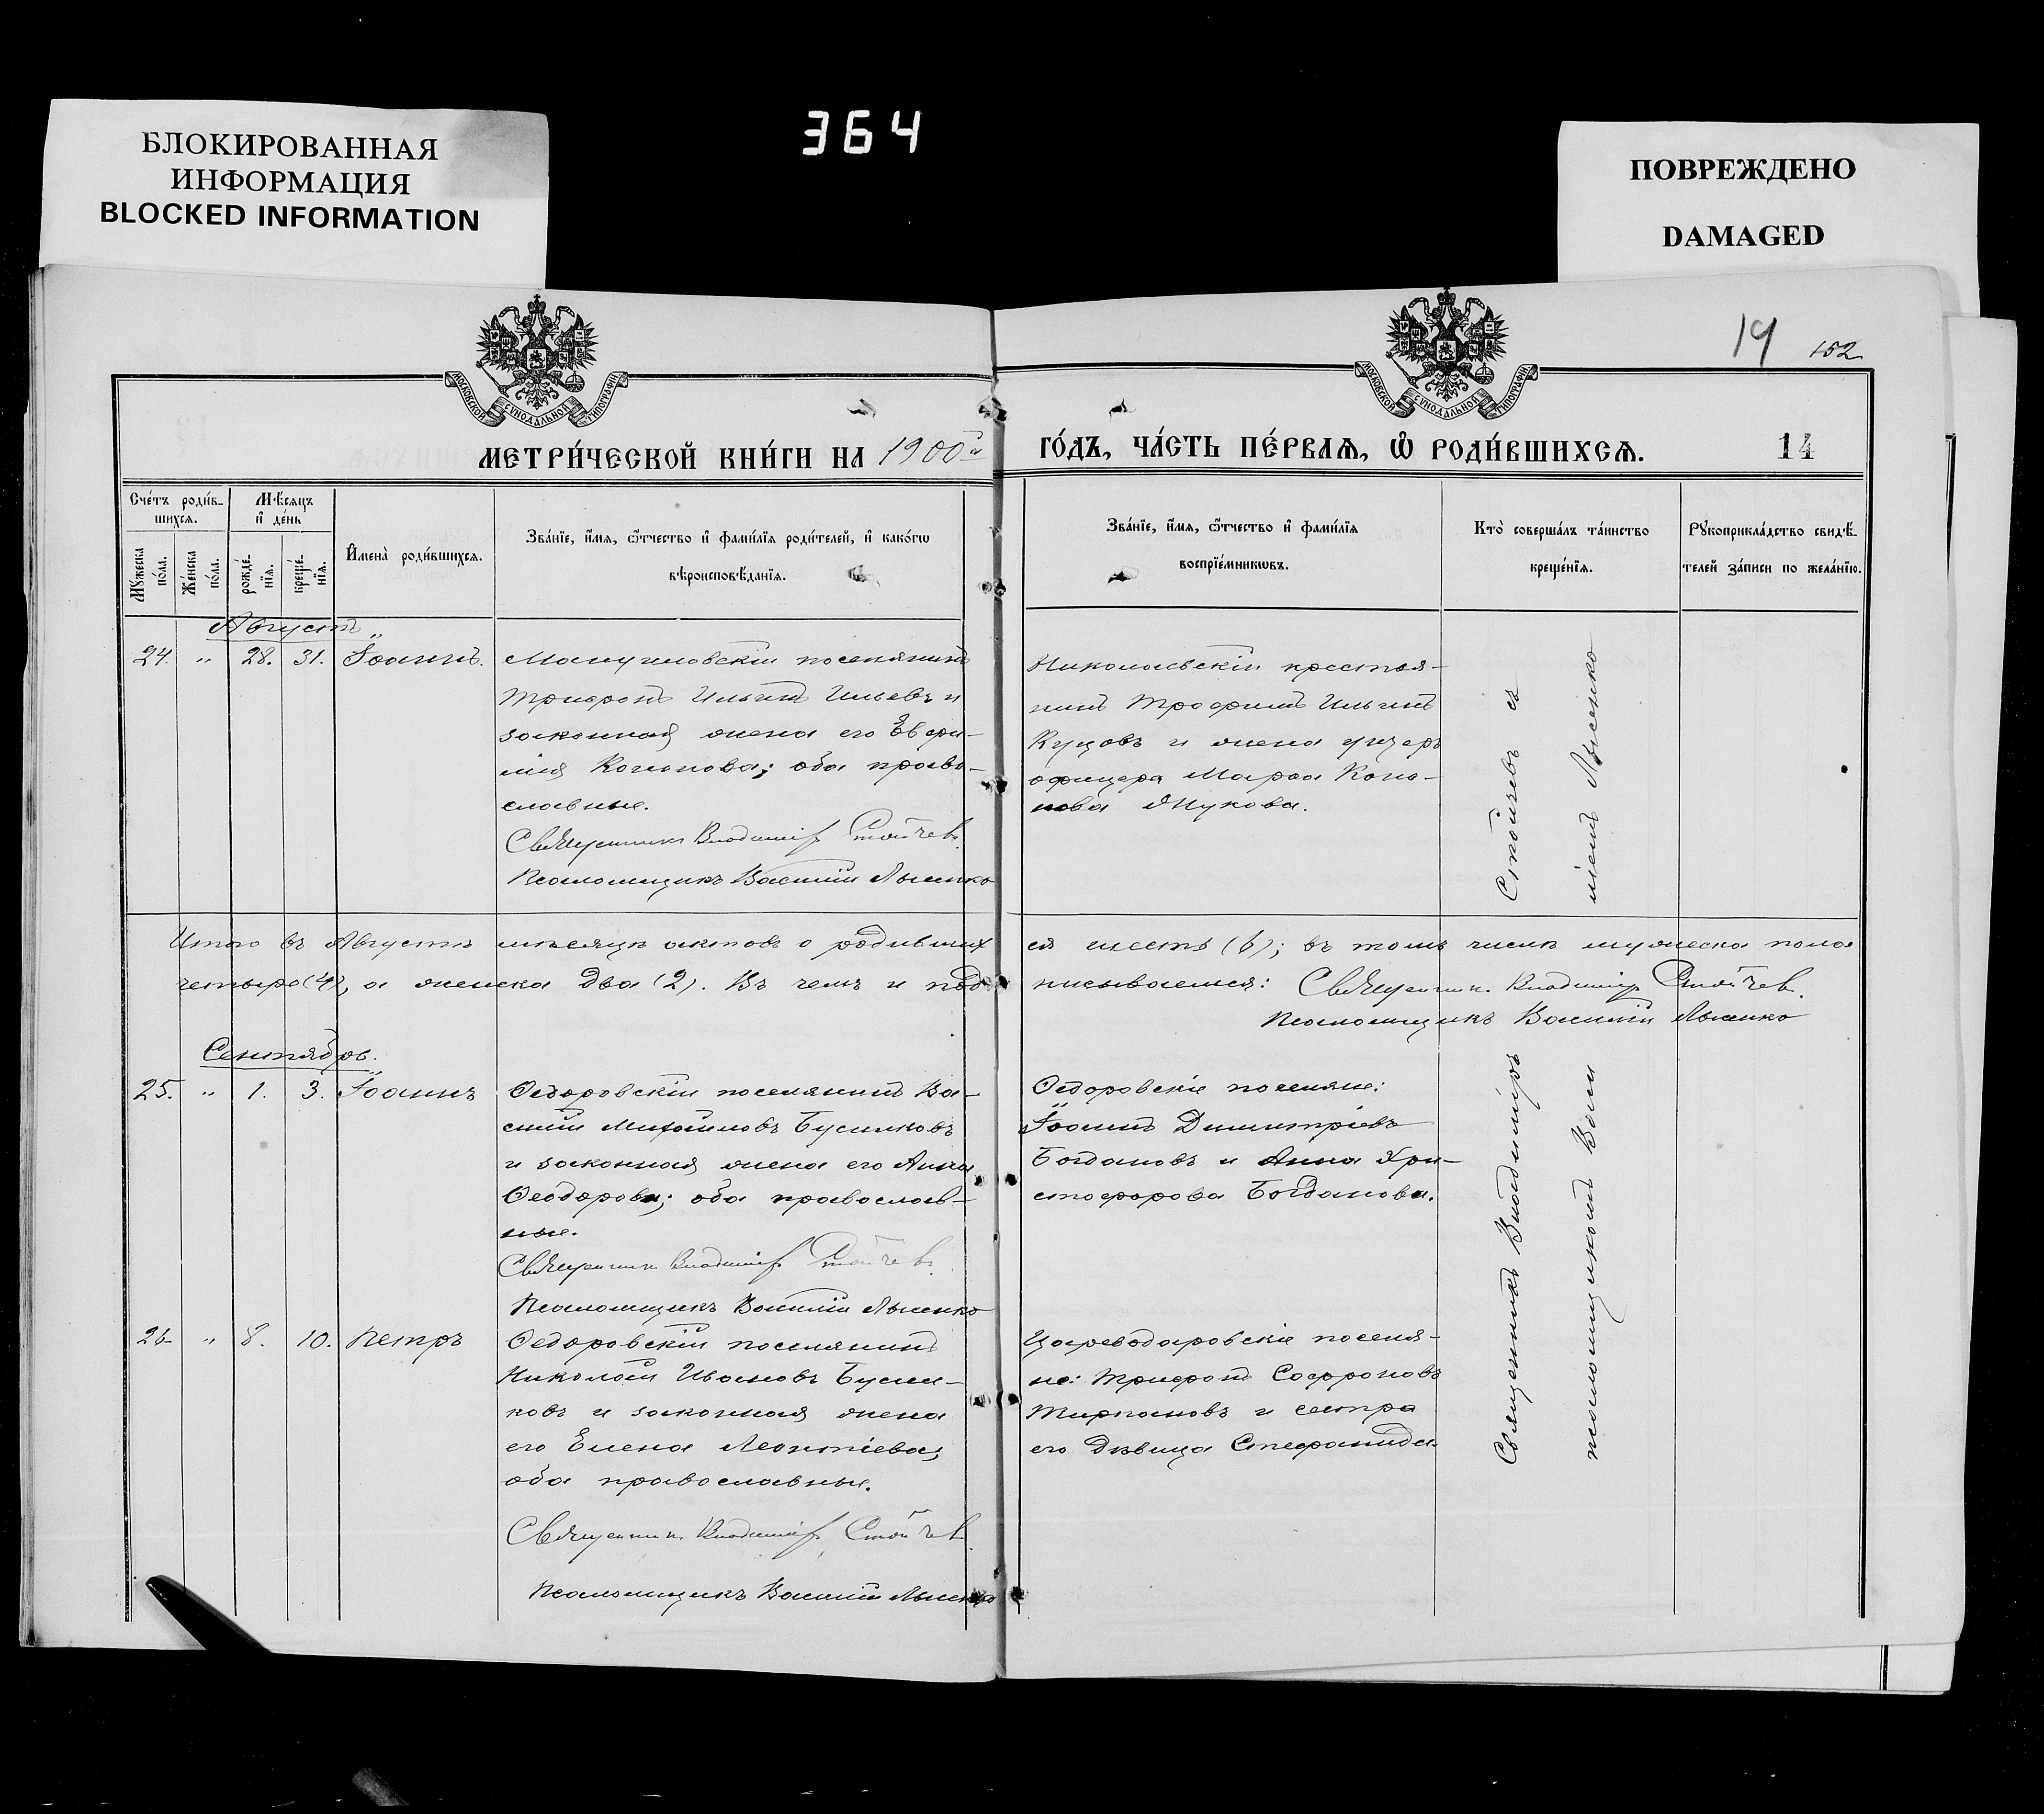 364
БЛОКИРОВАННАЯ
ИНФОРМАЦИЯ
BLOCKED INFORMATION
ПОВРЕЖДЕНО
DAMAGED
МОСКОВСКОЙ СУНОДАЛЬНОЙ ТИПОГРАФІИ
МОСКОВСКОЙ СУНОДАЛЬНОЙ ТИПОГРАФІИ
19 152
МЕТРИ́ЧЕСКОЙ КНИ́ГИ НА 1900й
ГО́ДЪ, ЧА́СТЬ ПЕ́РВАѦ, Ѡ҆ РОДИ́ВШИХСѦ. 14
Сче́тъ роди́в-
шихсѧ.
Мꙋжеска
по́ла.
Же́нска
по́ла.
Мѣ́сѧцъ
и҆ де́нь
рожде́-
нїѧ.
креще́-
нїѧ.
И҆мена̀ роди́вшихсѧ.
Зва́нїе, и҆́мѧ, ѻ҆́тчество и҆ фами́лїѧ роди́телей, и҆ како́гѡ
вѣроисповѣ́данїѧ.
Зва́нїе, и҆́мѧ, ѻ҆́тчество и҆ фами́лїѧ
воспрїе́мникѡвъ.
Кто̀ соверша́лъ та́инство
креще́нїѧ.
Рꙋкоприкла́дство свидѣ́-
телей за́писи по жела́нїю.
Августъ
24. " 28. 31. Іоаннъ.
Мануиловскій поселянинъ
Трифонъ Ильинъ Ильевъ и
законная жена его Евфи-
мія Кочинова; оба право-
славные.
Священникъ Владиміръ Стойчевъ.
Псаломщикъ Василій Лысенко
Николаевскій крестья-
нинъ Трофимъ Ильинъ
Куцовъ и жена унтеръ
офицера Марѳа Коно-
нова Жукова.
Стойчевъ съ
ліемъ Лысенко
Итого въ Августѣ мѣсяцѣ актовъ о родивших ся шесть (6); въ томъ числѣ мужеска пола
четыре (4), а женска два (2). Въ чемъ и под писываемся: Священникъ Владиміръ Стойчевъ.
Псаломщикъ Василій Лысенко
Сентябрь.
25. " 1. 3. Іоаннъ
Ѳедоровскій поселянинъ Ва-
силій Михайловъ Бусилковъ
и законная жена его Анна
Ѳеодорова; оба православ-
ные.
Священникъ Владиміръ Стойчевъ.
Псаломщикъ Василій Лысенко
Ѳедоровскіе поселяне:
Іоаннъ Димитріевъ
Богдановъ и Анна Хри-
стофорова Богданова.
Священникъ Владиміръ
псаломщикомъ Васи
26 " 8. 10. Петръ
Ѳедоровскій поселянинъ
Николай Ивановъ Бусил-
ковъ и законная жена
его Елена Леонтіева;
оба православные.
Священникъ Владиміръ Стойчевъ
Псаломщикъ Василій Лысенко
Цареводаровскіе поселя-
не: Трифонъ Софроновъ
Тирпановъ и сестра
его дѣвица Стефанида.